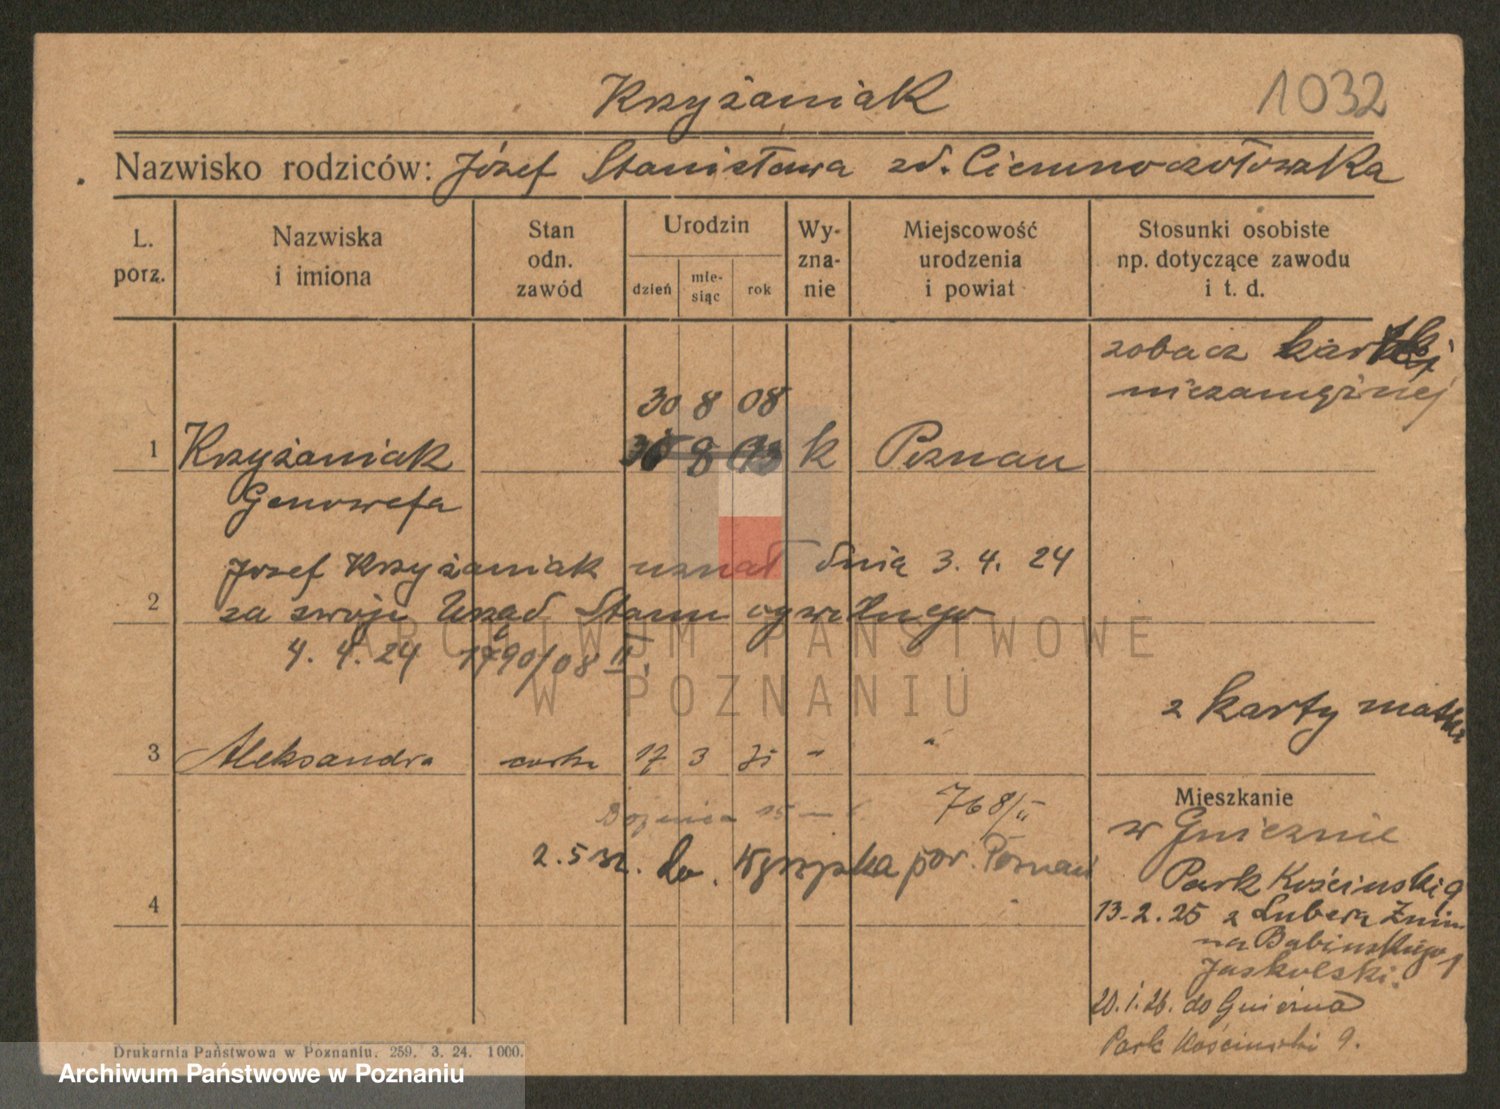 Krzyżaniak
1032
Nazwisko rodziców: Józef Stanisława zd. Ciemnoczołowska
L. porz.
Nazwiska i imiona
Stan odn. zawód
Urodzin
dzień
mie-siąc
rok
Wy-zna-nie
Miejscowość urodzenia i powiat
Stosunki osobiste np. dotyczące zawodu i t. d.
zobacz kartkę
niezamężnej
30 8 08
1 Krzyżaniak 8 k Poznań
Genowefa
Józef Krzyżaniak uznał dnia 3. 4. 24
2 za swoje Urząd Stanu cywilnego
4. 4. 24 1790/08 II.
z karty matki
3 Aleksandra córka 17 3 31 " "
768/II
Mieszkanie
w Gnieznie
2. 5 32. do pow. Poznań
Park Kościuski 9
4
13-2. 25 z Żnin
na Babinskiego 1
Jaskolski.
20. 1. 26. do Gniezna
Park Kościuski 9.
Drukarnia Państwowa w Poznaniu. 259. 3. 24. 1000.
ARCHIWUM PAŃSTWOWE
W POZNANIU
Archiwum Państwowe w Poznaniu